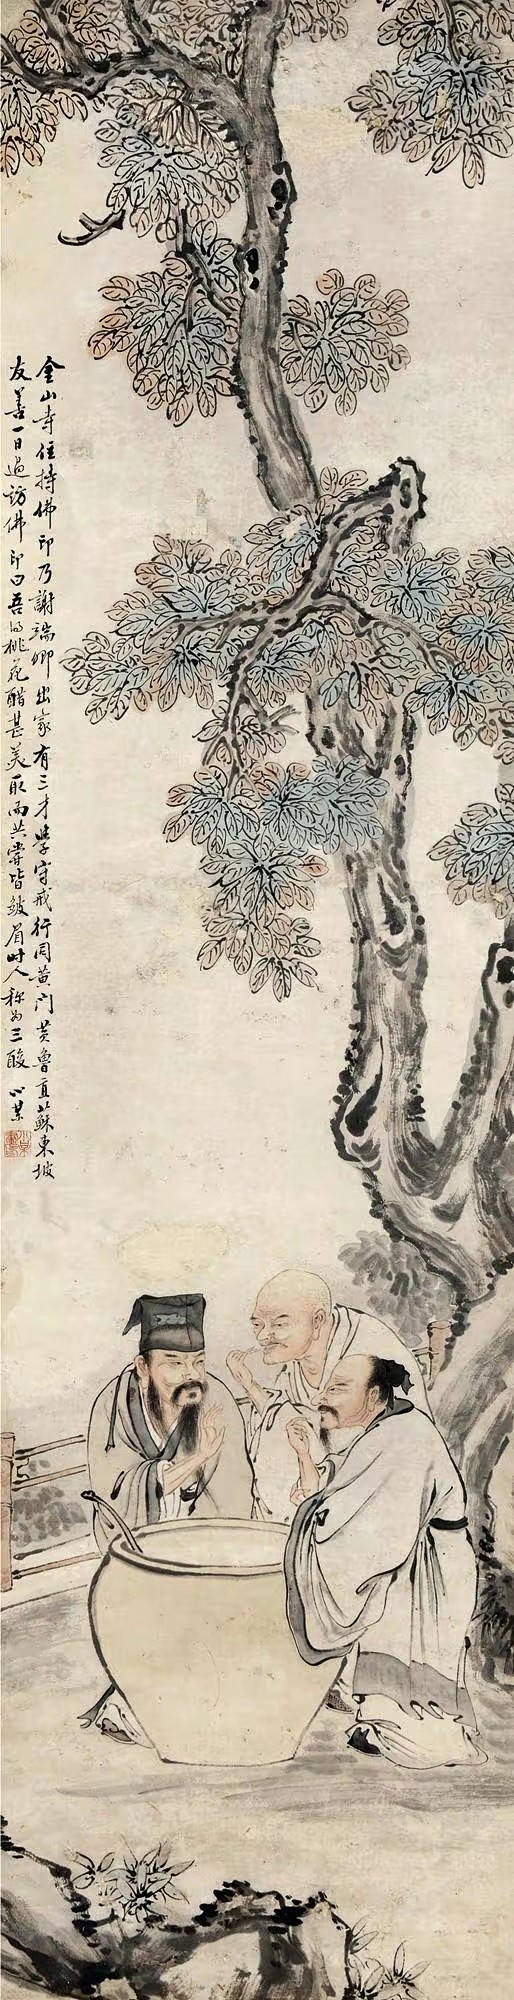 金山寺住持佛印乃謝端卿出家有三才學守戒行同黃門黃魯直蘇東坡
友善一日過訪佛印曰吾得桃花醋甚美取而共嘗皆皺眉時人称為三酸 心某